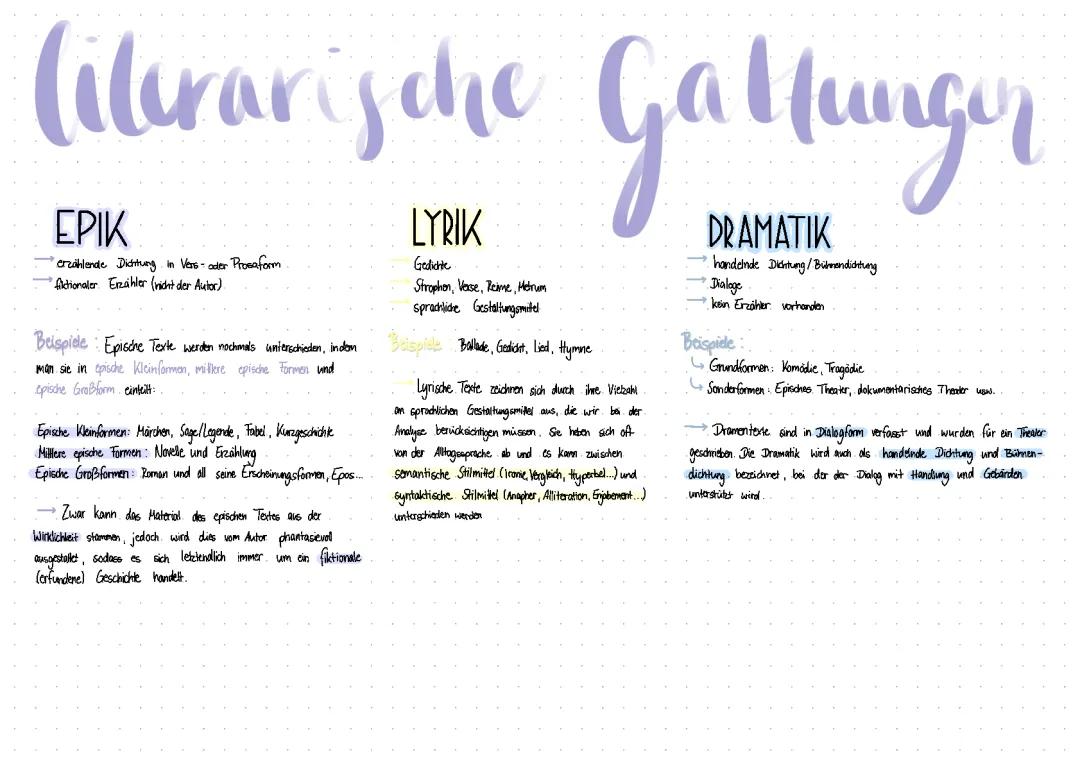 literarische Gattungen
EPIK
→ erzählende Dichtung in Vers- oder Prosaform
→ fiktionaler Erzähler (nicht der Autor)
Beispiele: Epische Texte werden nochmals unterschieden, indem
man sie in epische Kleinformen, mittlere epische Formen und
epische Großform einteilt:
Epische Kleinformen: Märchen, Sage/Legende, Fabel, Kurzgeschichte
Mittlere epische Formen: Novelle und Erzählung
Epische Großformen: Roman und all seine Erscheinungsformen, Epos...
→ Zwar kann das Material des epischen Textes aus der
Wirklichkeit stammen, jedoch wird dies vom Autor phantasievoll
ausgestaltet, sodass es sich letztendlich immer um ein fiktionale
(erfundene) Geschichte handelt.
LYRIK
→ Gedichte
→ Strophen, Verse, Reime, Metrum
→ sprachliche Gestaltungsmittel
Beispiele Ballade, Gedicht, Lied, Hymne
→ Lyrische Texte zeichnen sich durch ihre Vielzahl
an sprachlichen Gestaltungsmittel aus, die wir bei der
Analyse berücksichtigen müssen. Sie heben sich oft
von der Alltagssprache ab und es kann zwischen
semantische Stilmittel (Ironie, Vergleich, Hyperbel...) und
syntaktische Stilmittel (Anapher, Alliteration, Enjabement...)
unterschieden werden
DRAMATIK
→ handelnde Dichtung/Bühnendichtung
→ Dialoge
→ kein Erzähler vorhanden
Beispiele:
↳ Grundformen: Komödie, Tragödie
↳ Sonderformen: Episches Theater, dokumentarisches Theater usw.
→ Dramentexte sind in Dialogform verfasst und wurden für ein Theater
geschrieben. Die Dramatik wird auch als handelnde Dichtung und Bühnen-
dichtung bezeichnet, bei der der Dialog mit Handlung und Gebärden
unterstützt wird.